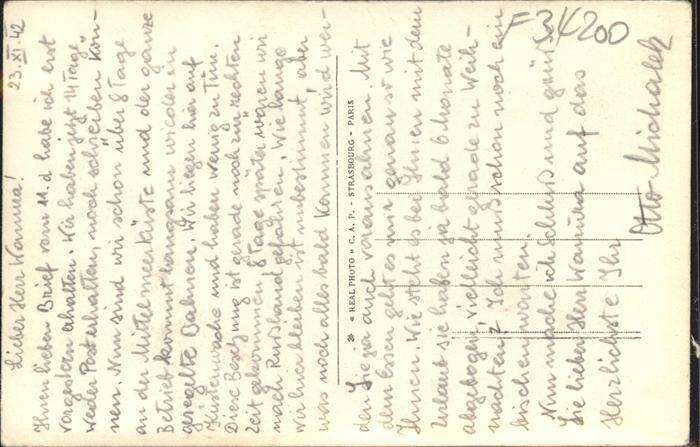 23.XI.42
Lieber Herr Wanura!
Ihren lieben Brief vom 11. d habe ich erst
vorgestern erhalten. Wir haben jetzt 14 Tage
weder Post erhalten noch schreiben kön-
nen. Nun sind wir schon über 8 Tage
an der Mittelmeerküste und der ganze
Betrieb kommt langsam wieder in
geregelte Bahnen. Wir liegen hier auf
Küstenwache und haben wenig zu Tun.
Diese Besetzung ist gerade noch zur rechten
Zeit gekommen, 8 Tage später wären wir
nach Rußland gefahren. Wie lange
wir hier bleiben ist unbestimmt aber
was noch alles bald kommen wird wer-
den Sie ja auch voraus ahnen. Mit
dem Essen geht es mir genau so wie
Ihnen. Wie steht es bei Ihnen mit dem
Urlaub sie haben ja bald 6 Monate
abgebogen vielleicht gerade zu Weih-
nachten? Ich muß schon noch ein
bischen warten.
Nun mache ich Schluß und grüße
Sie lieber Herr Wanura auf das
Herzlichste Ihr
Otto Michalek
F 34200
« REAL PHOTO » C. A. P. - STRASBOURG - PARIS